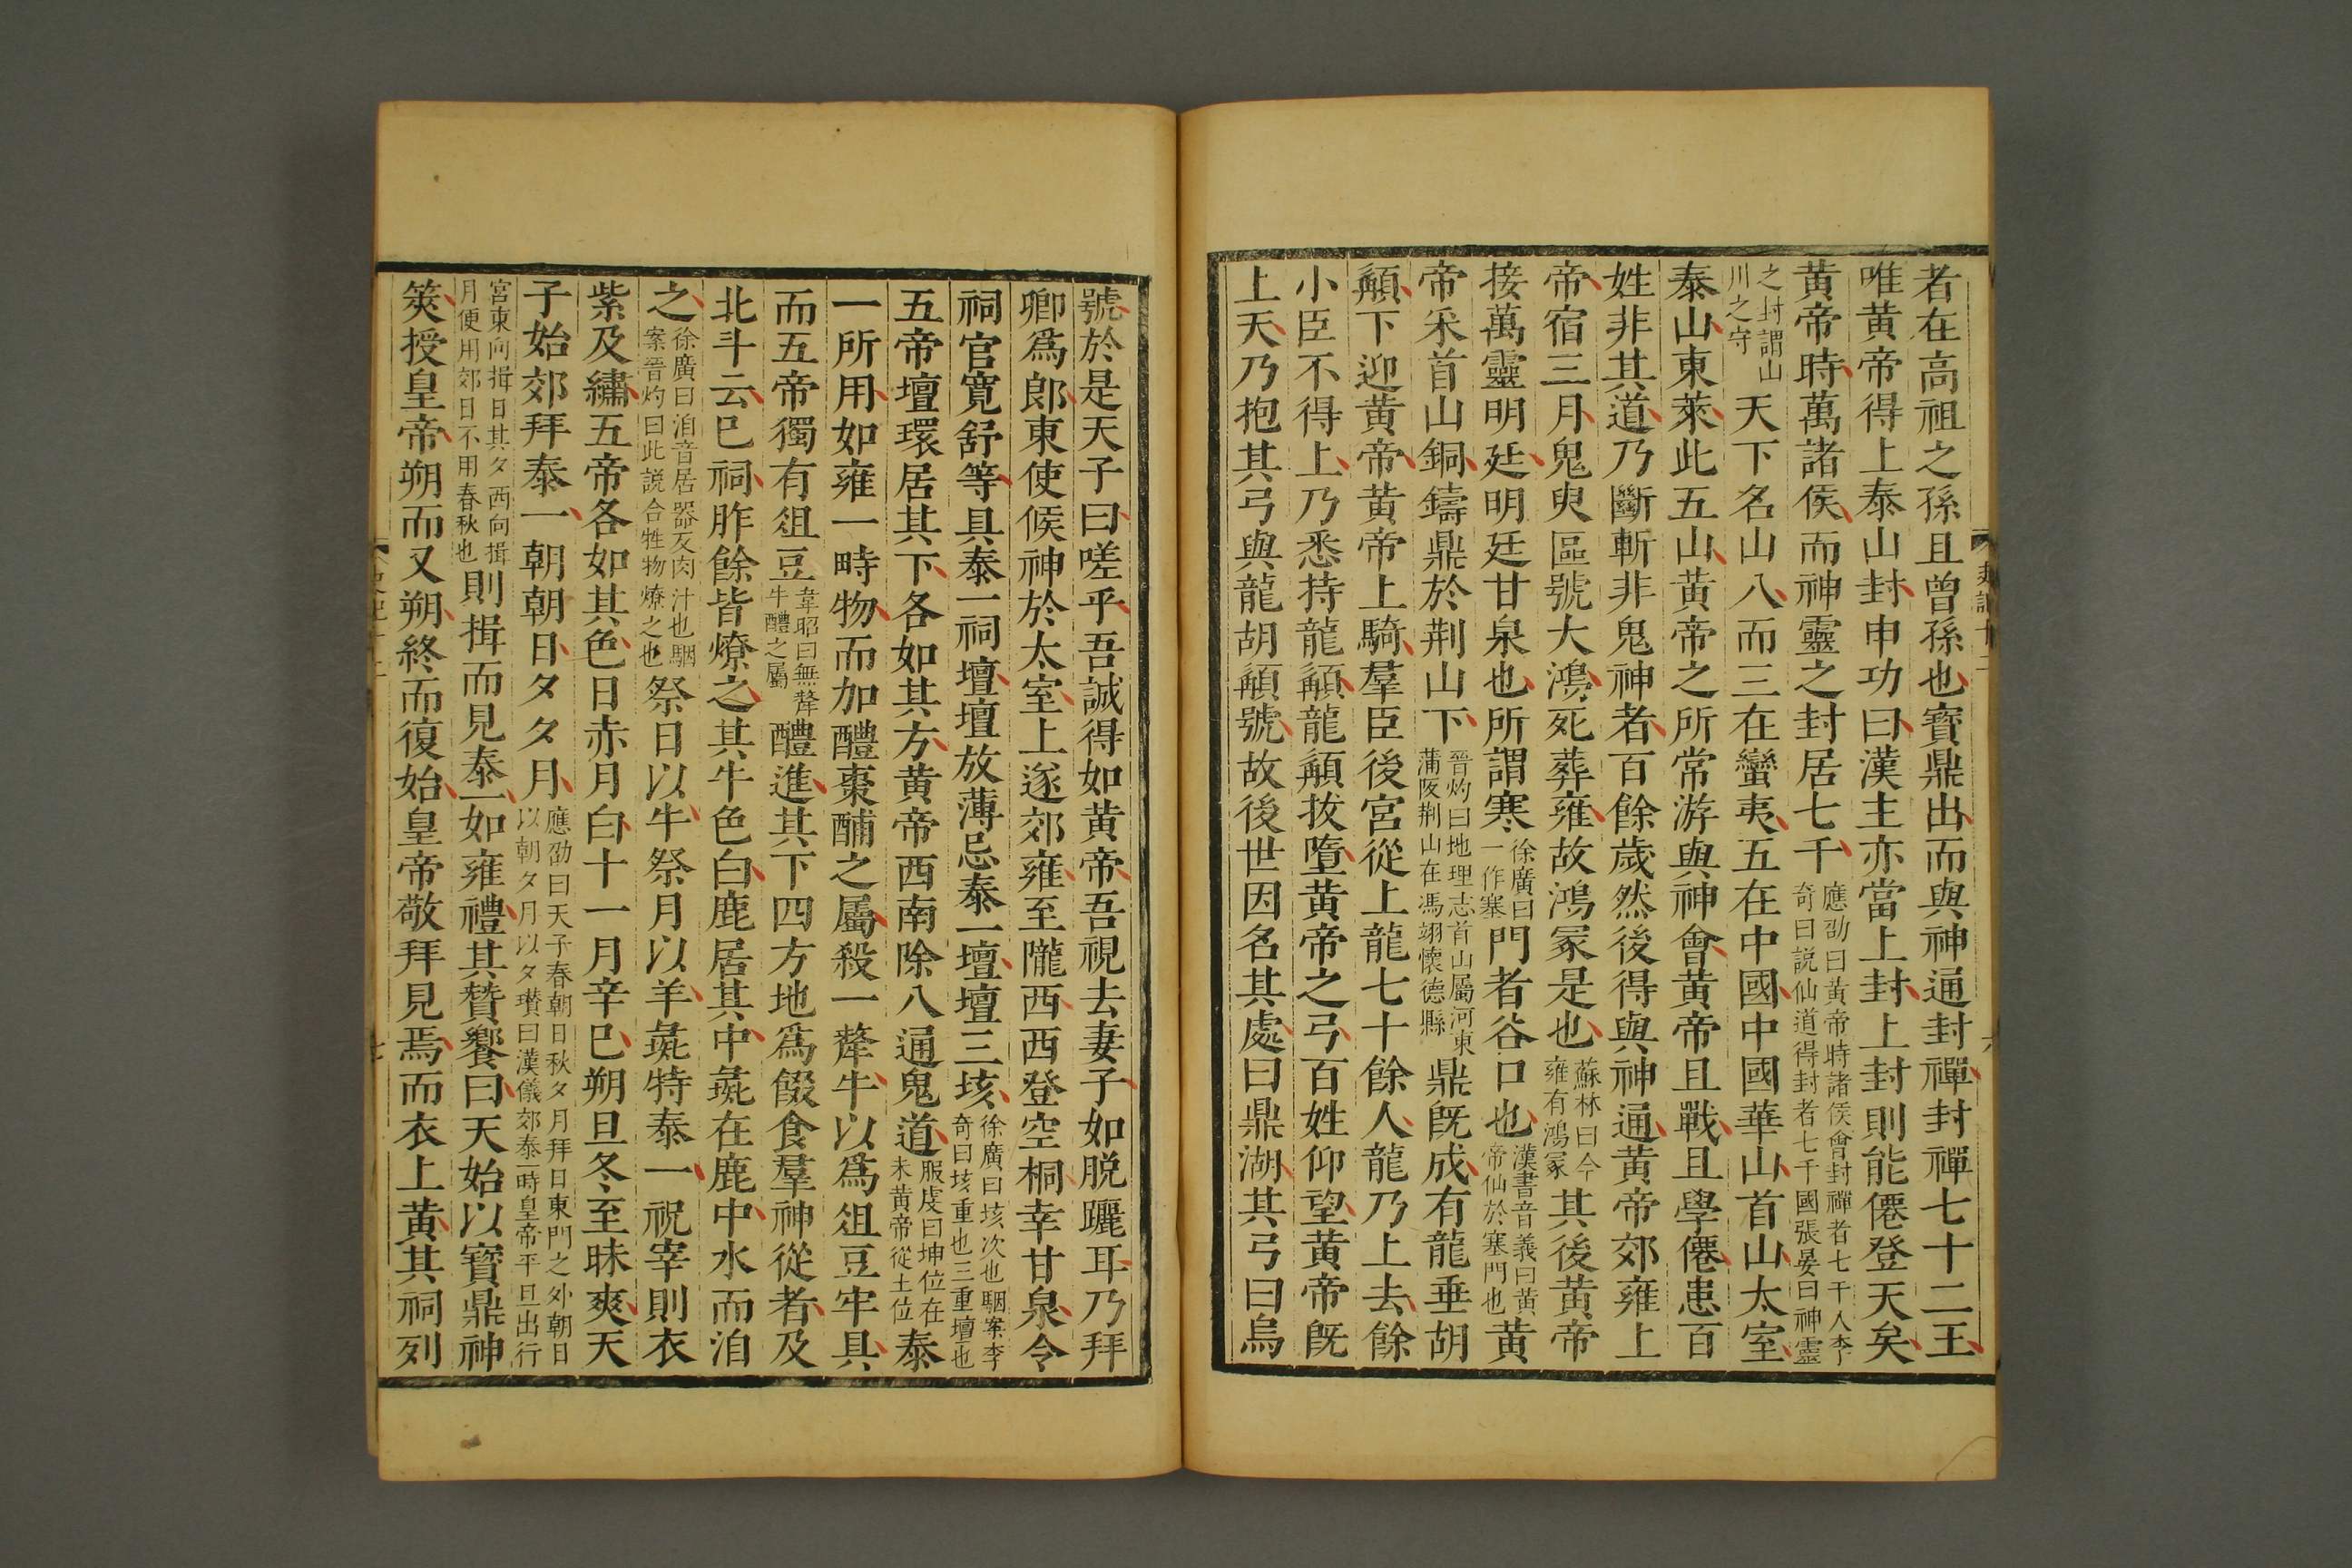 者在高祖之孫且曾孫也寶鼎出而與神通封禪封禪七十二王
唯黃帝得上泰山封申功曰漢主亦當上封上封則能僊登天矣
黃帝時萬諸侯而神靈之封居七千應劭曰黃帝時諸侯會封禪者七千人李奇曰說仙道得封者七千國張晏曰神靈
之封謂山川之守天下名山八而三在蠻夷五在中國中國華山首山太室
泰山東萊此五山黃帝之所常游與神會黃帝且戰且學僊患百
姓非其道乃斷斬非鬼神者百餘歲然後得與神通黃帝郊雍上
帝宿三月鬼臾區號大鴻死葬雍故鴻冢是也蘇林曰今雍有鴻冢其後黃帝
接萬靈明廷明廷甘泉也所謂寒徐廣曰一作塞門者谷口也漢書音義曰黃帝仙於塞門也黃
帝采首山銅鑄鼎於荆山下晉灼曰地理志首山屬河東蒲阪荆山在馮翊懷德縣鼎既成有龍垂胡
䫇下迎黃帝黃帝上騎羣臣後宮從上龍七十餘人龍乃上去餘
小臣不得上乃悉持龍䫇龍䫇拔墮黃帝之弓百姓仰望黃帝既
上天乃抱其弓與龍胡䫇號故後世因名其處曰鼎湖其弓曰烏
號於是天子曰嗟乎吾誠得如黃帝吾視去妻子如脫躧耳乃拜
卿爲郎東使候神於太室上遂郊雍至隴西西登空桐幸甘泉令
祠官寬舒等具泰一祠壇壇放薄忌泰一壇壇三垓徐廣曰垓次也駰案李奇曰垓重也三重壇也
五帝壇環居其下各如其方黃帝西南除八通鬼道服虔曰坤位在未黃帝從土位泰
一所用如雍一畤物而加醴棗脯之屬殺一犛牛以爲俎豆牢具
而五帝獨有俎豆韋昭曰無犛牛醴之屬醴進其下四方地爲餟食羣神從者及
北斗云已祠胙餘皆燎之其牛色白鹿居其中彘在鹿中水而洎
之徐廣曰洎音居器反肉汁也駰案晉灼曰此說合牲物燎之也祭日以牛祭月以羊彘特泰一祝宰則衣
紫及繡五帝各如其色日赤月白十一月辛巳朔旦冬至昧爽天
子始郊拜泰一朝朝日夕夕月應劭曰天子春朝日秋夕月拜日東門之外朝日以朝夕月以夕瓚曰漢儀郊泰一時皇帝平旦出行
宮東向揖日其夕西向揖月便用郊日不用春秋也則揖而見泰一如雍禮其贊饗曰天始以寶鼎神
筴授皇帝朔而又朔終而復始皇帝敬拜見焉而衣上黃其祠列